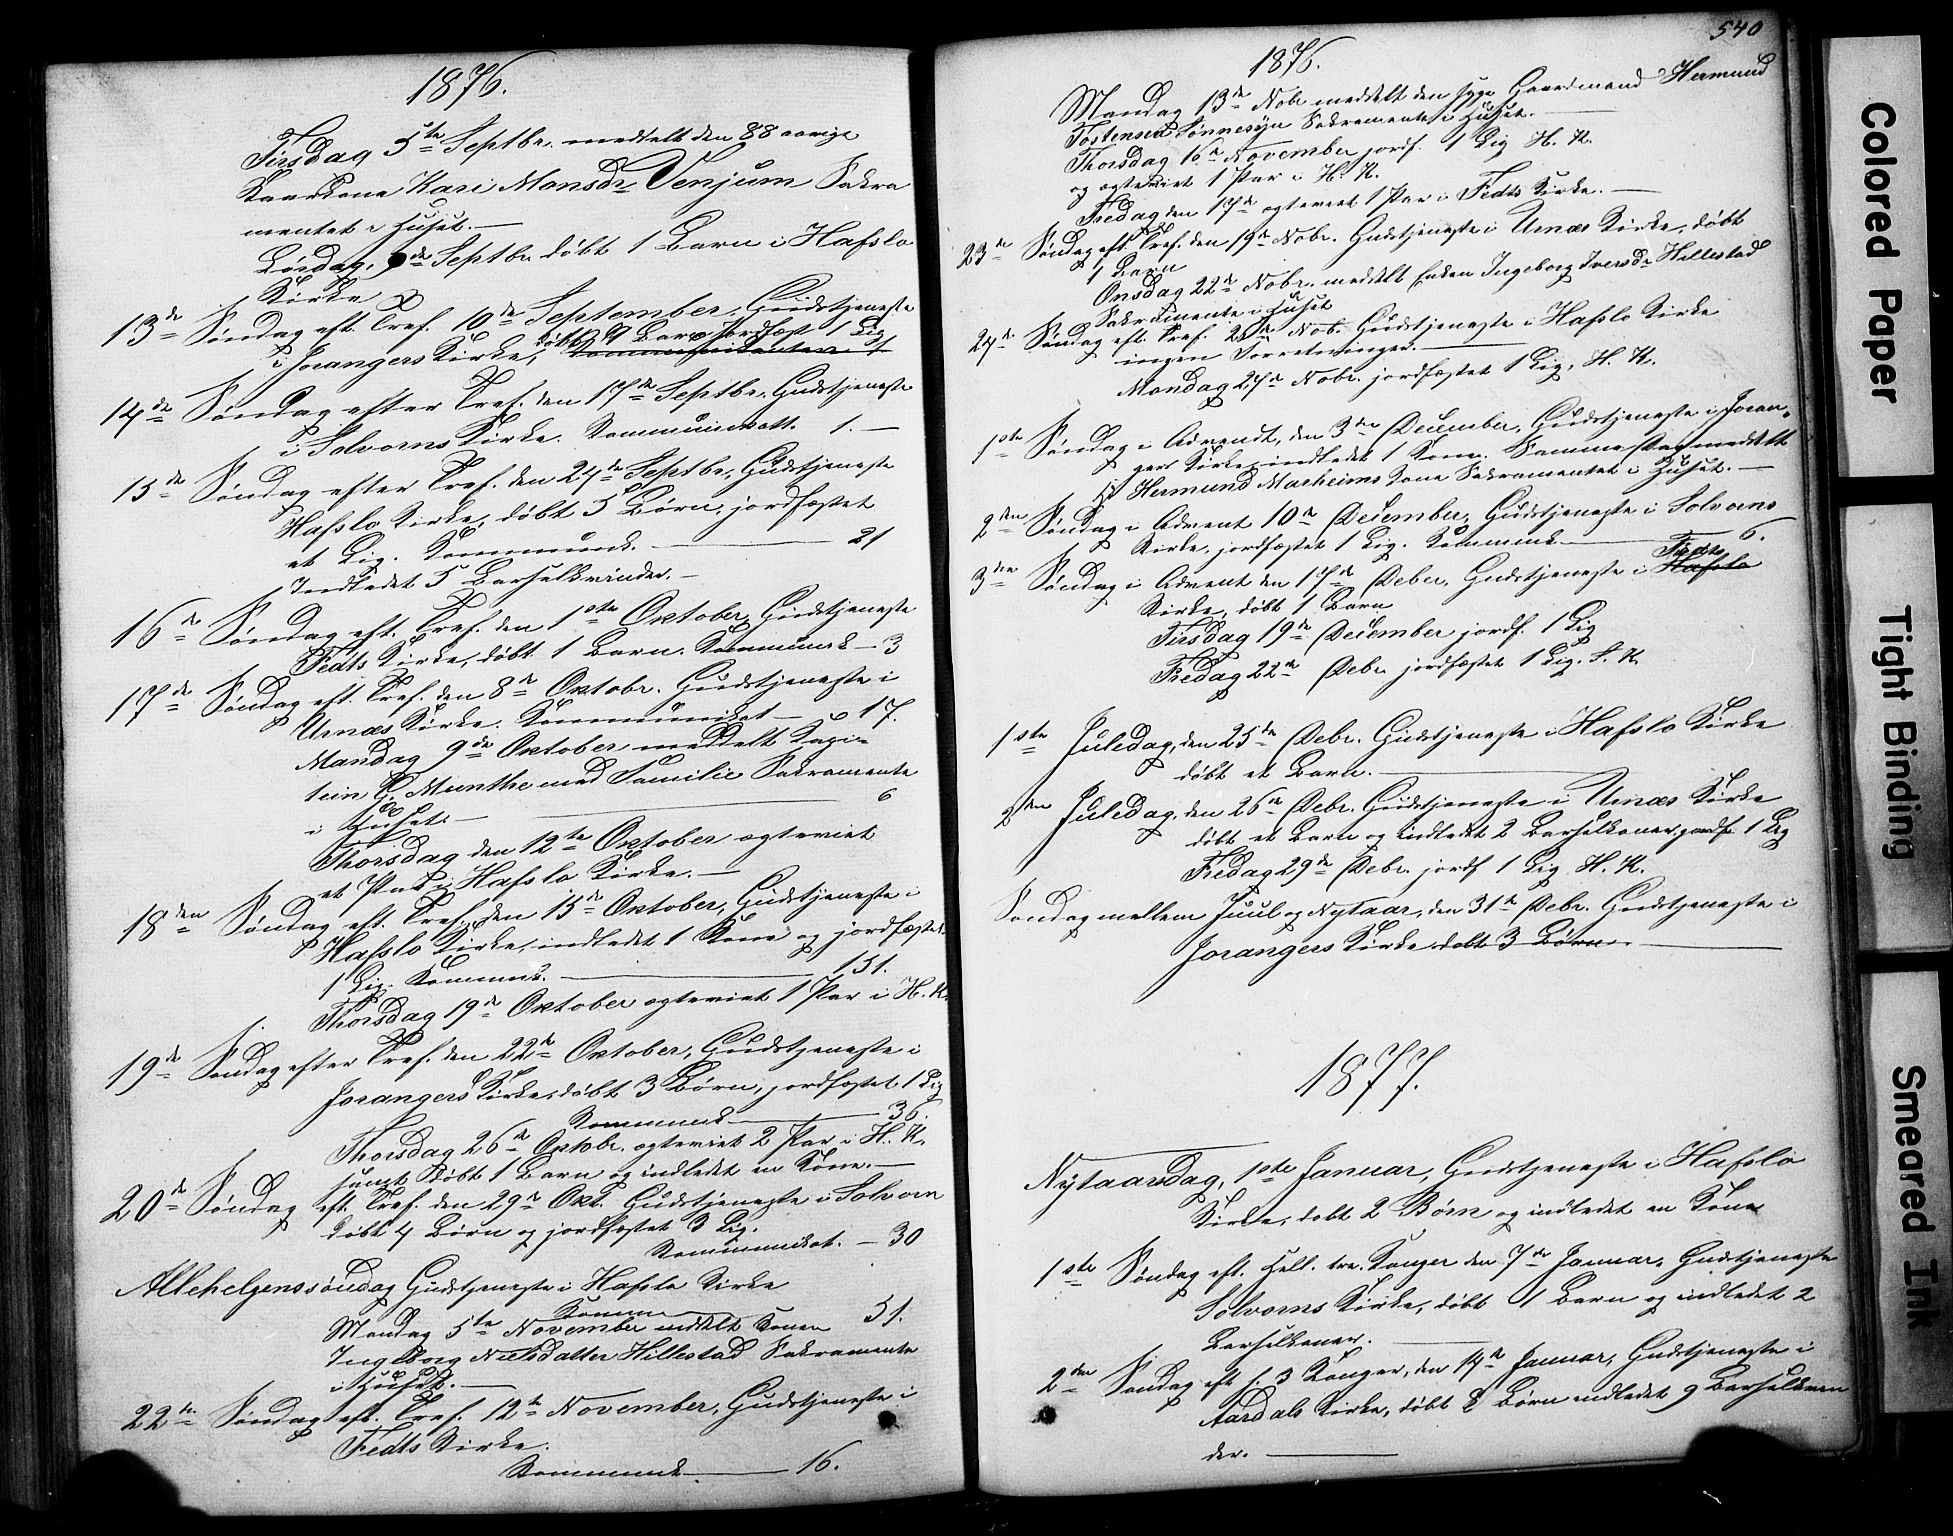 1876.
Tirsdag 5te Septbr. meddelt den 88 aarige
Kaarkone Kari Monsdr Venjum Sakra
mentet i Huset.—
Lørdag, 9de Septbr. døbt 1 Barn i Hafslo
Kirke
13de Søndag eft. Tref. 10de September, Gudstjeneste
i Jorangers Kirke, døbt 9 Børn, Jordfæst 1 Lig
14de Søndag efter Tref. den 17de Septbr. Gudstjeneste
i Solvorns Kirke. Kommunikatt. 1.—
15de Søndag efter Tref. den 24de Septbr. Gudstjeneste
Hafslo Kirke, døbt 5 Børn, jordfæstet
et Lig. Kommunk. — 21
Indledet 5 Barselkvinder.—
16de Søndag eft. Tref. den 1ste Oktober, Gudstjeneste
Fedts Kirke, døbt 1 Barn. Kommunk — 3
17de Søndag eft. Tref. den 8de Oktobr. Gudstjeneste i
Urnæs Kirke. Kommunikat — 17.
Mandag 9de Oktober meddelt Capi-
tein G. Munthe med Familie Sakramente
i Huset.— 6
Thorsdag den 12te Oktober ægteviet
et Par i Hafslo Kirke.—
18den Søndag eft. Tref. den 15de Oktober, Gudstjeneste i
Hafslo Kirke, indledet 1 Kone og jordfæstet
1 Lig. Kommunk. — 151.
Thorsdag 19de Oktober ægteviet 1 Par i H. K.
19de Søndag efter Tref. den 22de Oktober, Gudstjeneste i
Jorangers Kirke, døbt 3 Børn, jordfæstet 1 Lig
Kommunk — 36.
Thorsdag 26de Oktobr. ægteviet 2 Par i H. K.
samt døbt 1 Barn og indledet en Kone.—
20de Søndag eft. Tref. den 29de Okt. Gudstjeneste i Solvorn
døbt 4 Børn og jordfæstet 3 Lig.
Kommunikat. — 30
Allehelgenssøndag Gudstjeneste i Hafslo Kirke
Kommun — 51.
Mandag 5te November meddelt Konen
Ingeborg Nielsdatter Hillestad Sakramente
i Huset.—
22de Søndag eft. Tref. 12te November, Gudstjeneste i
Fedts Kirke.
Kommunk — 16.
540
1876.
Mandag 13de Nobr meddelt den syge Gaardmand Hermund
Tostensen Sønnesyn Sakramente i Huset.—
Thorsdag 16de November jordf. 1 Lig H. K.
og ægteviet 1 Par i H. K.
Fredag den 17de ægteviet 1 Par i Fedts Kirke.—
23de Søndag eft. Tref. den 19de Nobr. Gudstjeneste i Urnæs Kirke, døbt
1 Barn
Onsdag 22de Nobr. meddelt Enken Ingeborg Iversdr Hillestad
Sakramente i Huset
24de Søndag eft. Tref. 26de Nob. Gudstjeneste i Hafslo Kirke
ingen Forretninger.—
Mandag 27de Nobr. jordfæstet 1 Lig, H. K.
1ste Søndag i Advendt, den 3die December, Gudstjeneste i Joran-
gers Kirke, indledet 1 Kone. Samme Dag meddelt
Hermund Marheims Kone Sakramentet i Huset.—
2den Søndag i Advent 10de December, Gudstjeneste i Solvorns
Kirke, jordfæstet 1 Lig. Kommunk — 6.
3die Søndag i Advent den 17de Deber, Gudstjeneste i Hafslo Fedts
Kirke, døbt 1 Barn
Tirsdag 19de December jordf. 1 Lig
Fredag 22de Debr jordfæstet 1 Lig. S. K.
1ste Juledag, den 25de Debr. Gudstjeneste i Hafslo Kirke
døbt et Barn.—
2den Juledag, den 26de Debr. Gudstjeneste i Urnæs Kirke
døbt et Barn og indledet 2 Barselkoner, jordf. 1 Lig
Fredag 29de Debr. jordf 1 Lig H. K.
Søndag mellem Juul og Nytaar, den 31te Debr. Gudstjeneste i
Jorangers Kirke døbt 3 Børn.—
1877.
Nytaarsdag, 1ste Januar, Gudstjeneste i Hafslo
Kirke, døbt 2 Børn og indledet en Kone
1ste Søndag eft. Hell. tre. Konger den 7de Januar, Gudstjeneste
Solvorns Kirke, døbt 1 Barn og indledet 2
Barselkoner.—
2den Søndag eft h. 3 Konger, den 14de Januar, Gudstjeneste i
Aardals Kirke, døbt 8 Børn indledet 9 Barselkvin
der.—
Colored Paper
Tight Binding
Smeared Ink